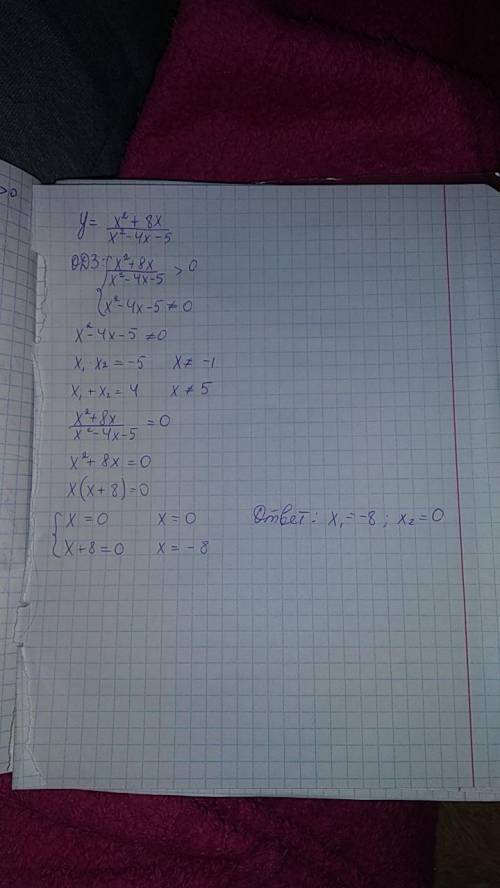 >0
y = \frac{x² + 8x}{x² - 4x - 5}
ОДЗ: { \frac{x² + 8x}{x² - 4x - 5} > 0
x² - 4x - 5 ≠ 0
x² - 4x - 5 ≠ 0
x₁ x₂ = -5 x ≠ -1
x₁ + x₂ = 4 x ≠ 5
\frac{x² + 8x}{x² - 4x - 5} = 0
x² + 8x = 0
x(x + 8) = 0
{ x = 0 x = 0 Ответ: x₁ = -8; x₂ = 0
x + 8 = 0 x = -8